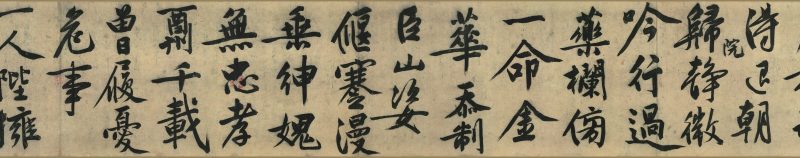 得退朝
歸靜院微
吟行過
藥欄傍
一命金
華忝制
臣山姿
偃蹇漫
垂紳愧
無忠孝
千載
曾履憂
危事
一人陛擁